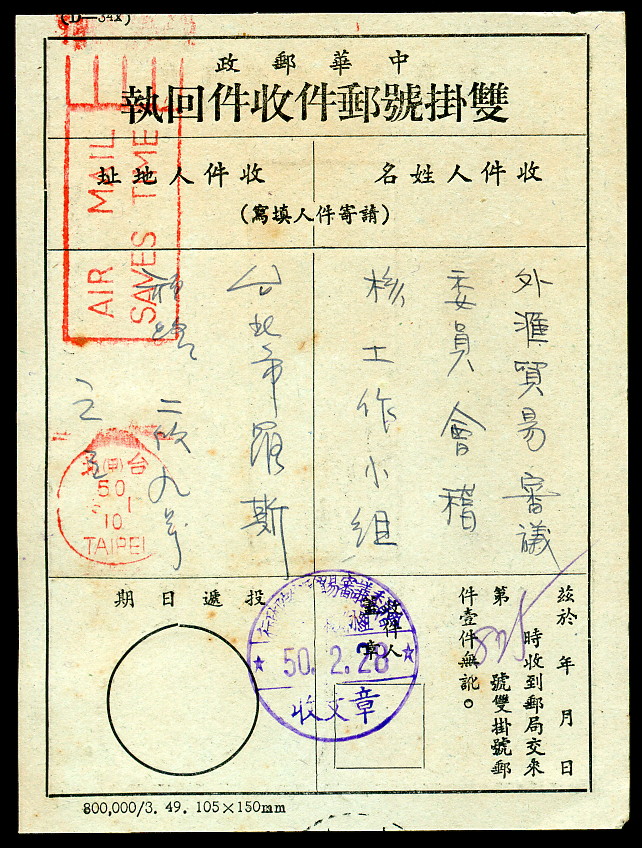 (D—34x)
中華郵政
雙掛號郵件收件回執
收件人姓名
收件人地址
(請寄件人填寫)
外滙貿易審議
委員會稽
核工作小組
台北市羅斯
福路二段九號
之
AIR MAIL
SAVES TIME
台
(甲)
50
10
TAIPEI
茲於 年 月 日
時收到郵局交來
第 號雙掛號郵
件壹件無訛。
收件人
蓋章
投遞日期
貿易審議委
50. 2. 28
收文章
800,000/3. 49. 105×150mm